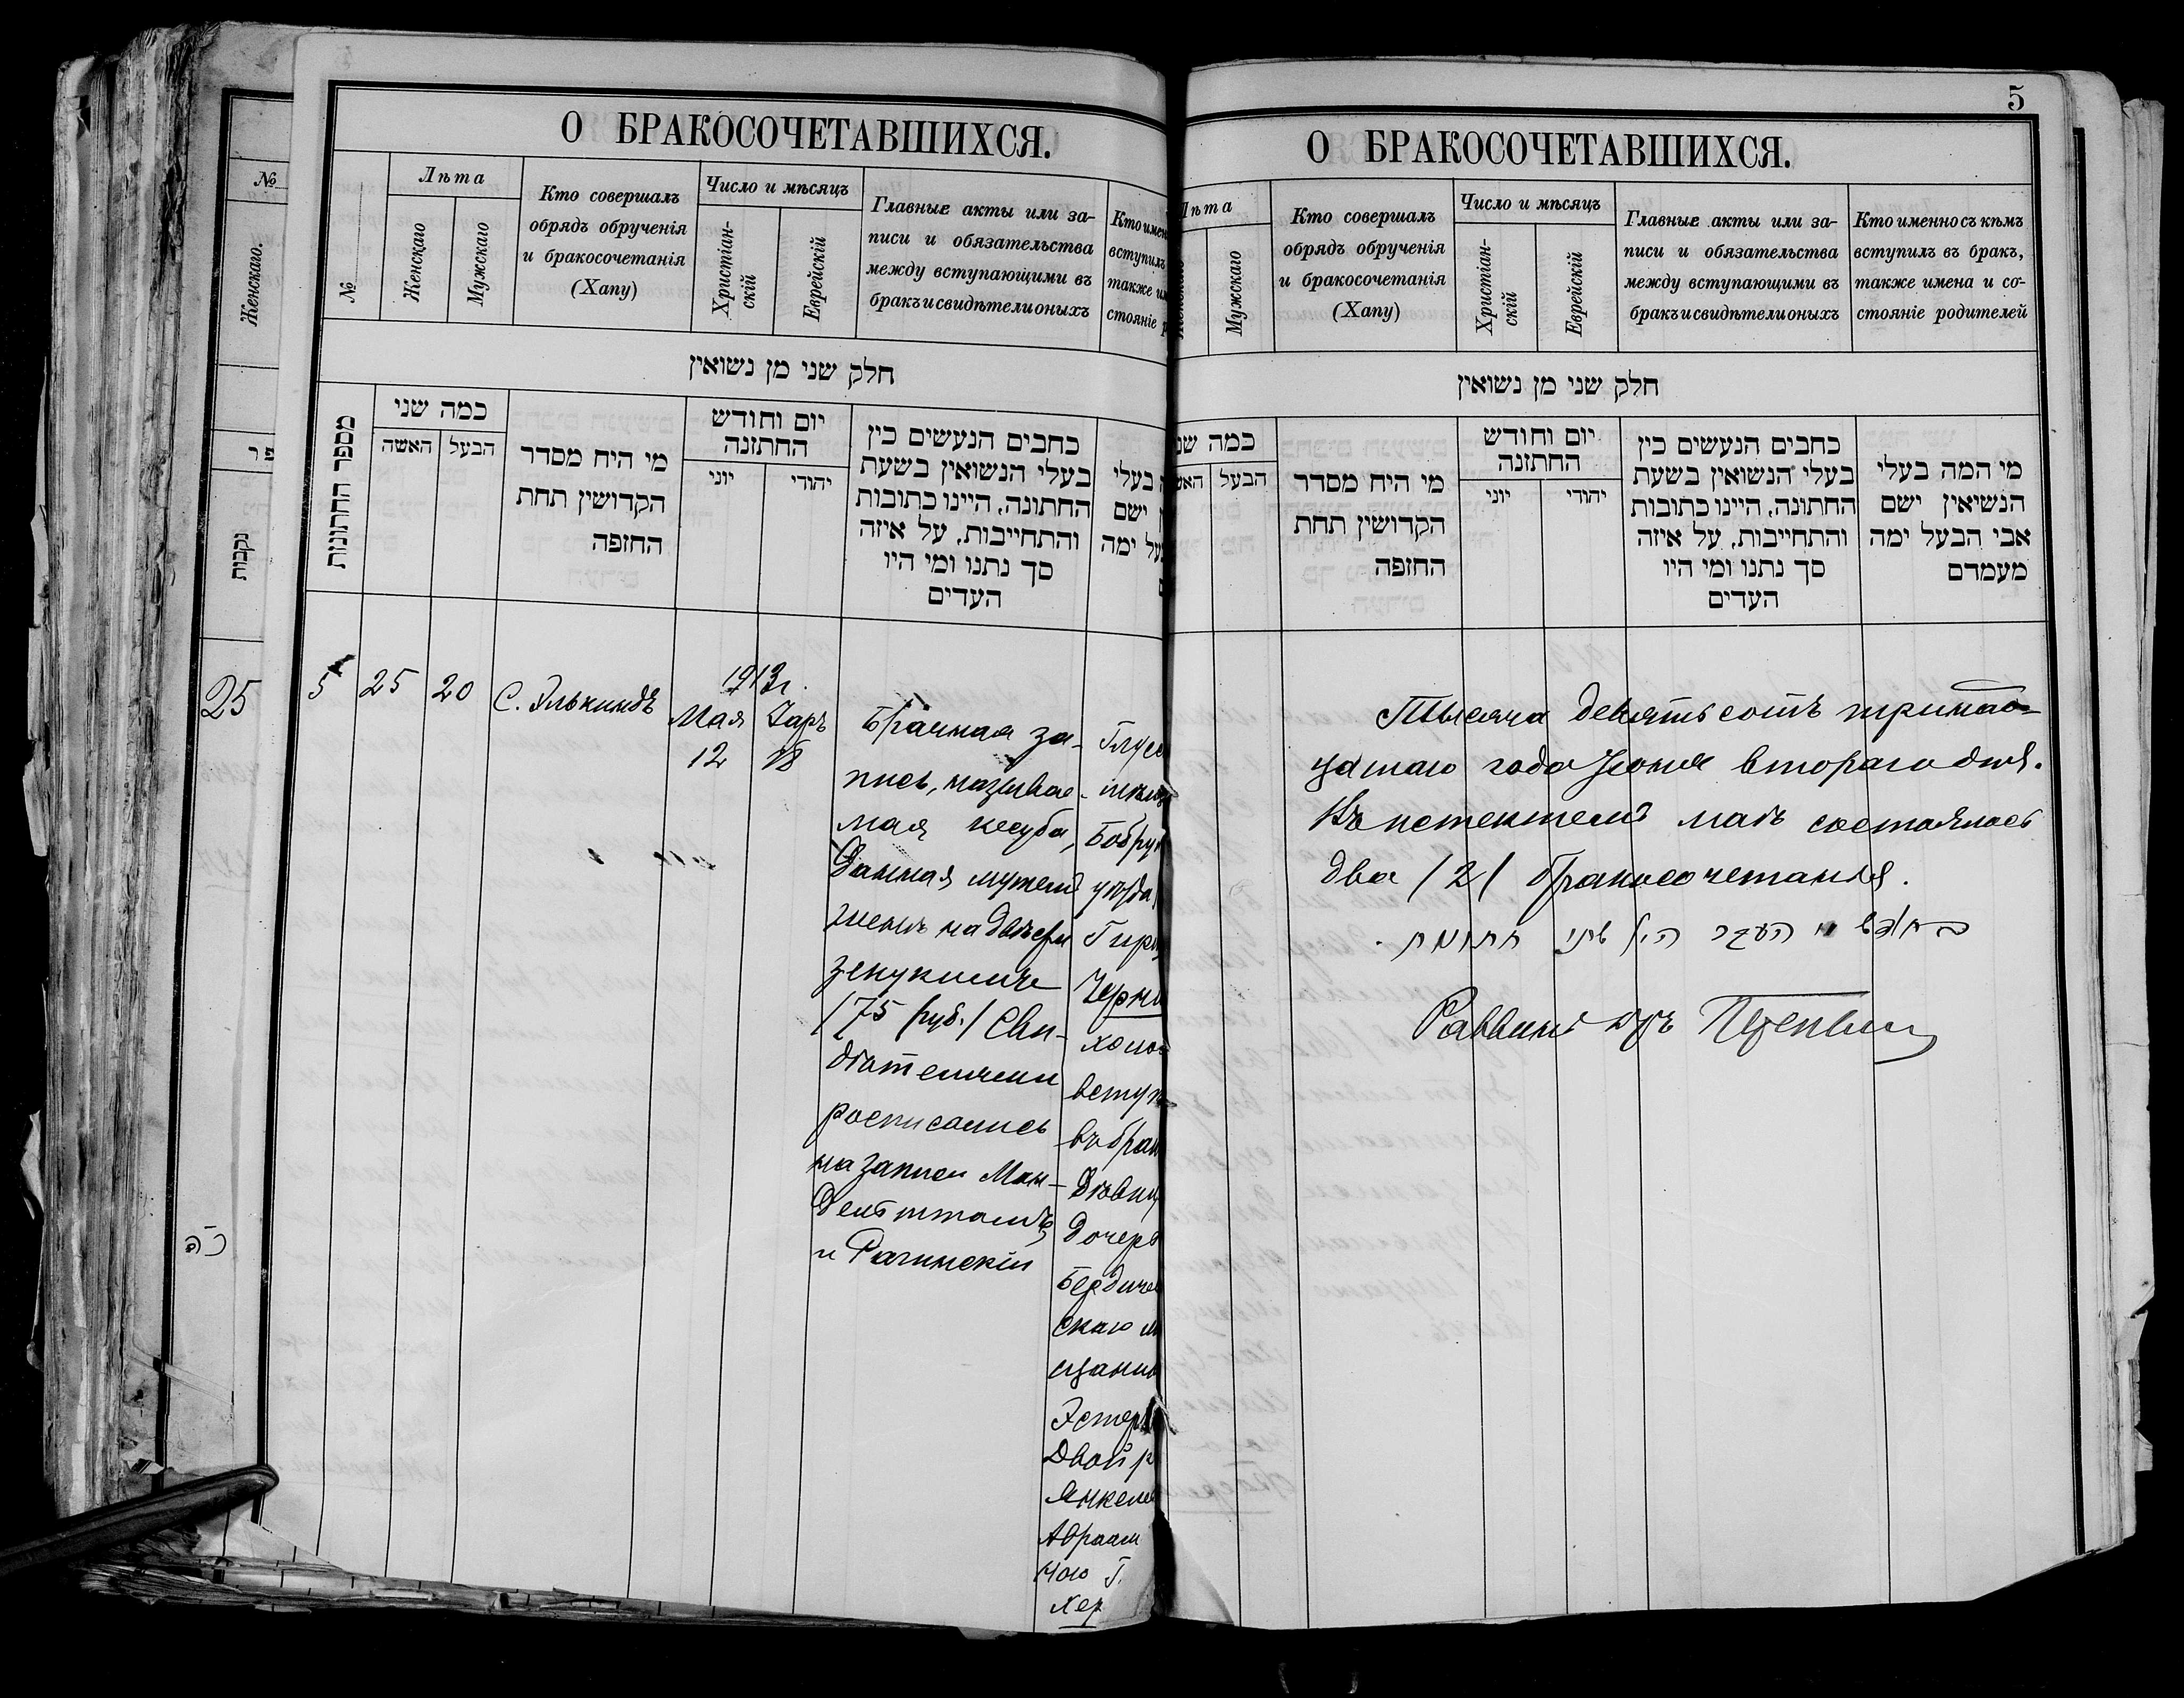 №
Женскаго.
פר
נקבות
25
כ״ה
О БРАКОСОЧЕТАВШИХСЯ.
№
Лѣта
Женскаго
Мужскаго
Кто совершалъ
обрядъ обрученія
и бракосочетанія
(Хапу)
Число и мѣсяцъ
Христіан-
скій
Еврейскій
Главные акты или за-
писи и обязательства
между вступающими въ
бракъ и свидѣтели оныхъ
Кто имен
вступилъ
также им
стояніе р
חלק שני מן נשואין
מספר החתונות
כמה שני
האשה
הבעל
מי היח מסדר
הקדושין תחת
החופה
יום וחודש
החתונה
יוני
יהודי
כתבים הנעשים בין
בעלי הנשואין בשעת
החתונה, היינו כתובות
והתחייבות, על איזה
סך נתנו ומי היו
העדים
בעלי
ן ישם
על ימה
5
25
20
С. Элькиндъ
1913 г.
Мая
12
Іаръ
18
Брачная за-
пись, называе-
мая кесуба,
данная мужемъ
женѣ на двѣсти
зекукимъ
/75 руб./ Сви-
дѣтелями
росписались
на записи Ман-
дельштамъ
и Рагинскій
Глус
Бобру
уѣзда
Черн
холос
вступ
въ брак
дѣвиц
дочерь
Бердиче
скаго м
щанин
Эстер
Двойр
Янкеле
Авраам
ною Г.
Хер
5
О БРАКОСОЧЕТАВШИХСЯ.
Лѣта
Мужскаго
Кто совершалъ
обрядъ обрученія
и бракосочетанія
(Хапу)
Число и мѣсяцъ
Христіан-
скій
Еврейскій
Главные акты или за-
писи и обязательства
между вступающими въ
бракъ и свидѣтели оныхъ
Кто именно съ кѣмъ
вступилъ въ бракъ,
также имена и со-
стояніе родителей
חלק שני מן נשואין
כמה שנ
האש
הבעל
מי היח מסדר
הקדושין תחת
החופה
יום וחודש
החתונה
יוני
יהודי
כתבים הנעשים בין
בעלי הנשואין בשעת
החתונה, היינו כתובות
והתחייבות, על איזה
סך נתנו ומי היו
העדים
מי המה בעלי
הנשיאין ישם
אבי הבעל ימה
מעמדם
Тысяча девятьсотъ тринад-
цатаго года Іюня второго дня.
Въ истекшемъ маѣ состоялось
два /2/ бракосочетанія.
בחדש העבר היו שתי חתונות.
Раввинъ